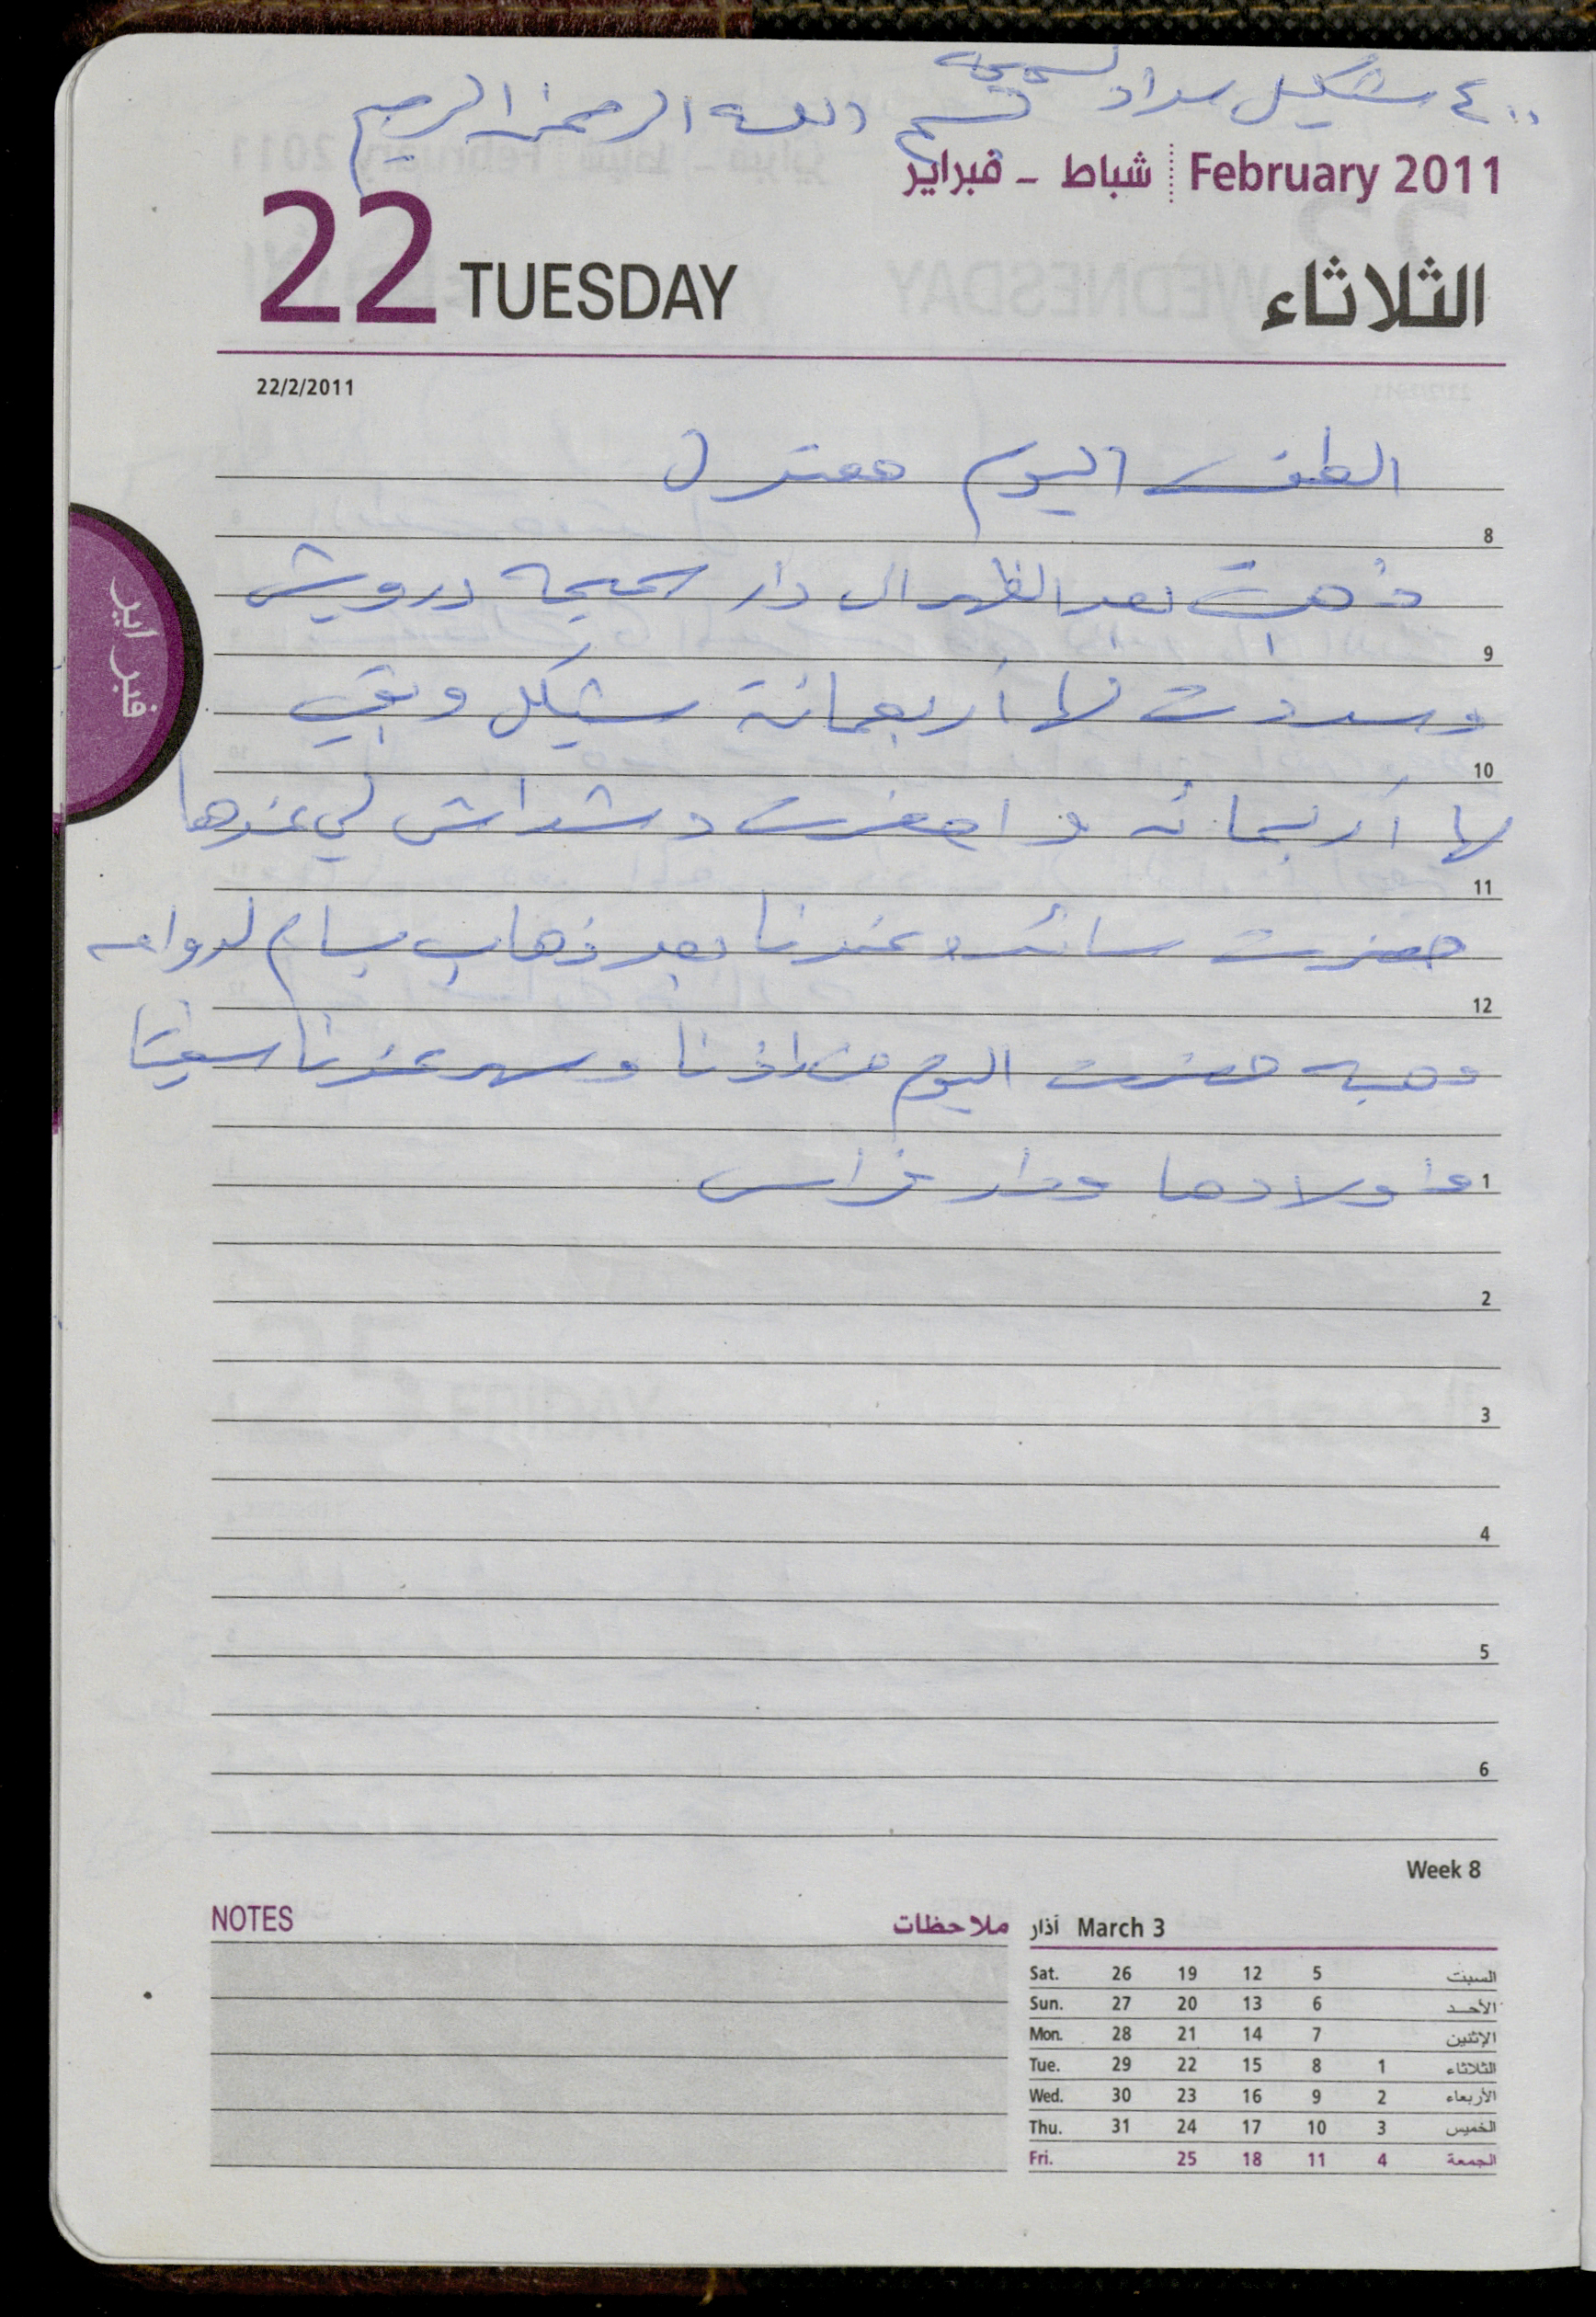 ٤٠٠ شيكل سداد لسميحه
بسم الله الرحمن الرحيم
February 2011 شباط - فبراير
22 TUESDAY الثلاثاء
22/2/2011
الطقس اليوم معتدل
8
ذهبت بعد الظهر الى دار سميحه درويش
9
وسددت لها أربعمائة شيكل وبقي
10
لها أربعمائه و احضرت دشداش لي عندها
11
حضرت سائده عندنا بعد ذهاب بسام لدوامه
12
وهبه حضرت اليوم من وسهر عندنا
1
واولادها ودار فراس
2
3
4
5
6
فبراير
Week 8
NOTES ملاحظات
آذار March 3
Sat. 26 19 12 5 السبت
Sun. 27 20 13 6 الأحد
Mon. 28 21 14 7 الإثنين
Tue. 29 22 15 8 1 الثلاثاء
Wed. 30 23 16 9 2 الأربعاء
Thu. 31 24 17 10 3 الخميس
Fri. 25 18 11 4 الجمعة